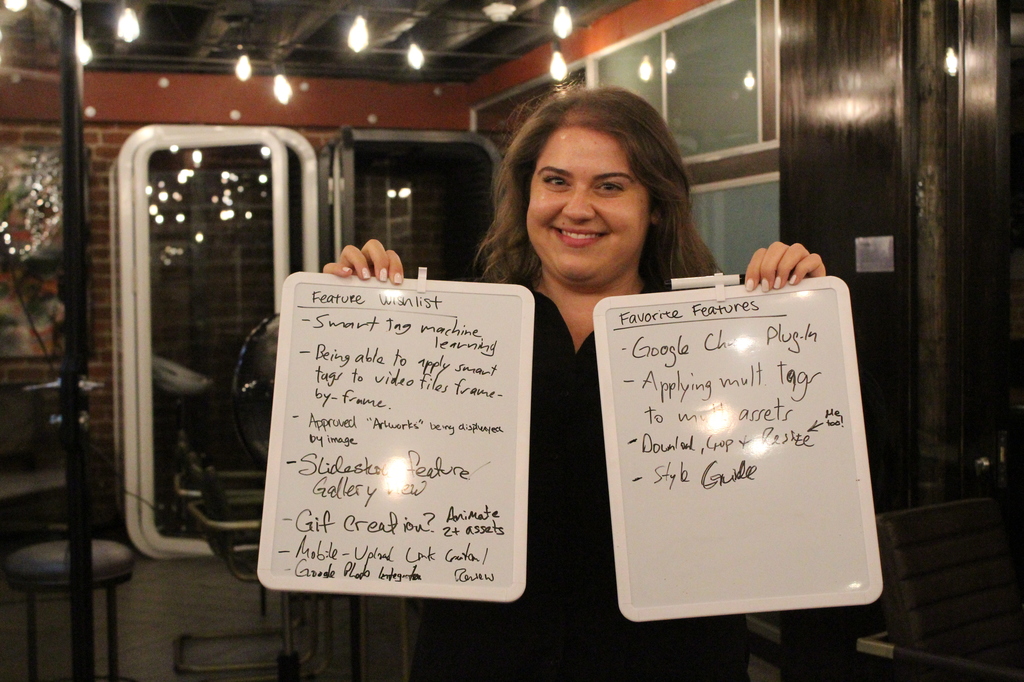 Feature Wishlist
- Smart tag machine
learning
- Being able to apply smart
tags to video files frame-
by-frame.
- Approved "Artworks" being displayed
by image
- Slideshow feature/
Gallery view
- Gif creation? Animate
2+ assets
- Mobile - Upload Link Creation/
Review
- Google Photo Integration
Favorite Features
- Google Chrome Plug-In
- Applying mult. tags
to mult assets
- Download, Crop + Resize
Me
too!
- Style Guide